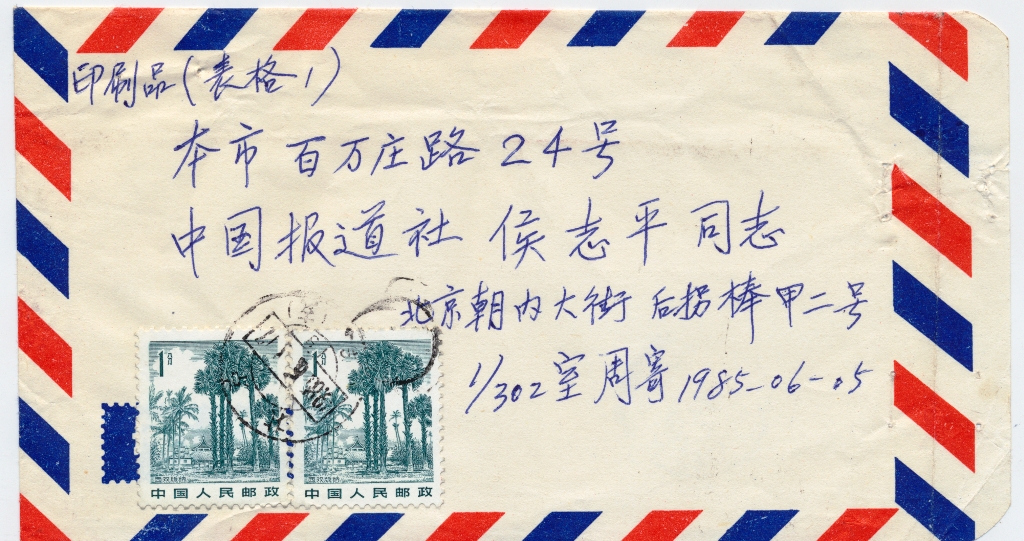 印刷品(表格1)
本市 百万庄路 24号
中国报道社 侯志平同志
北京朝内大街 后拐棒甲二号
1/302室 周寄 1985-06-05
1分
1分
西双版纳
西双版纳
中国人民邮政
中国人民邮政